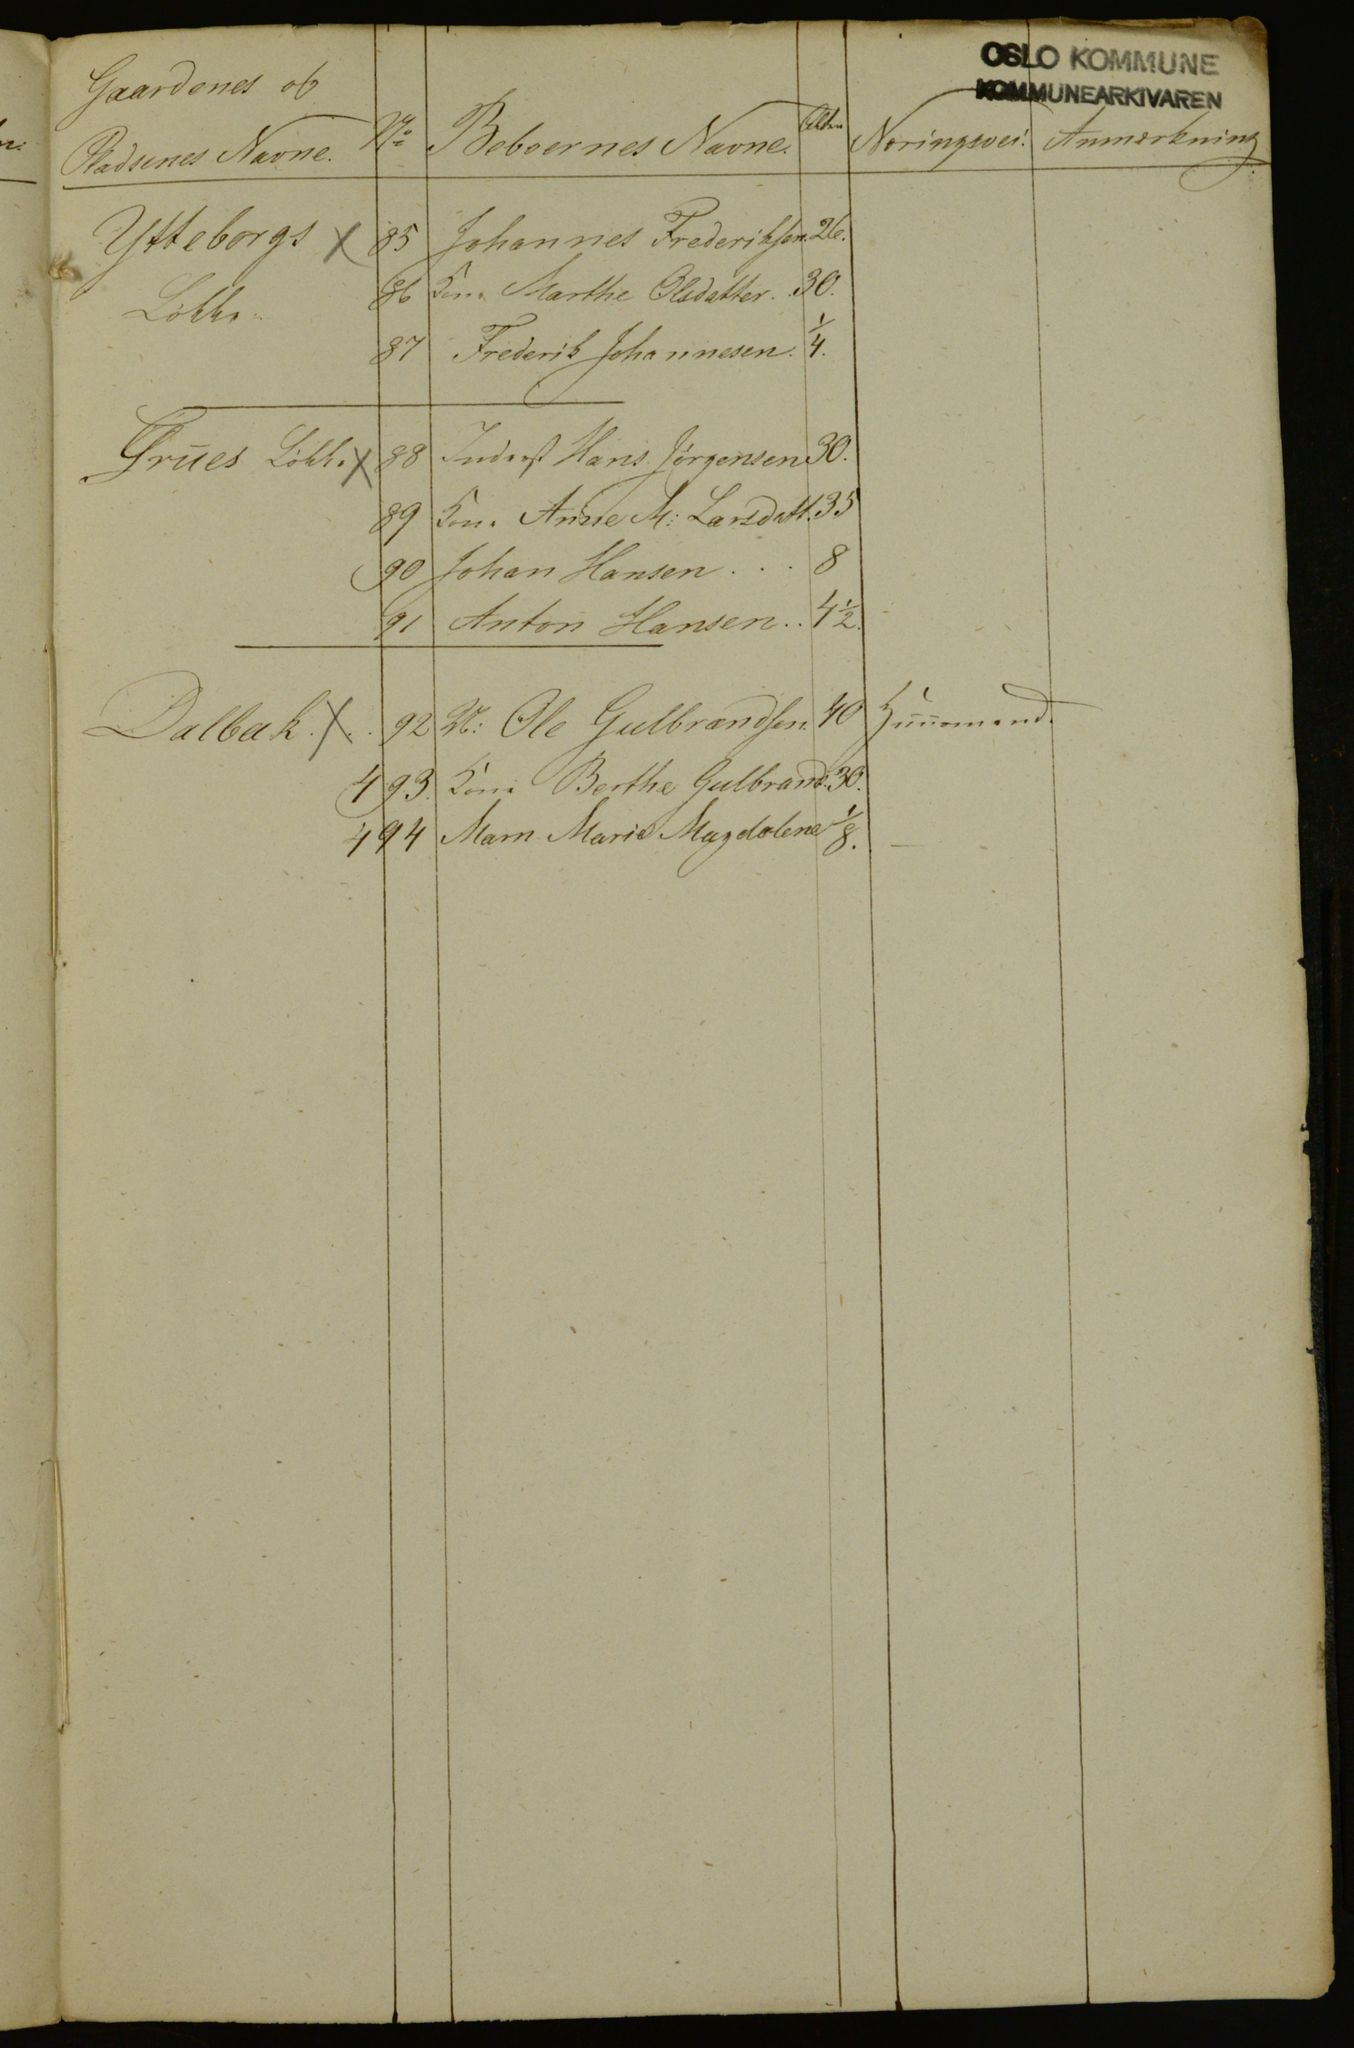 OSLO KOMMUNE
KOMMUNEARKIVAREN
Gaardenes og
Pladsenes Navne. No Beboernes Navne. Alder Næringsvei. Anmærkning
Ytteborgs X 85 Johannes Frederiksen. 26.
Løkke 86 Kone Marthe Olsdatter. 30.
87 Frederik Johannesen. 1/4.
Grües Løkke X 88 Inderst Hans Jørgensen 30.
89 Kone Anne M: Larsdatt. 35
90 Johan Hansen . . . 8
91 Anton Hansen . . 4 1/2.
Dalbak. X . 92 Ole Gulbrandsen. 40 Huusmand.
493. Kone Berthe Gulbrands. 30.
494 Marn Marie Magdalene 1/8.